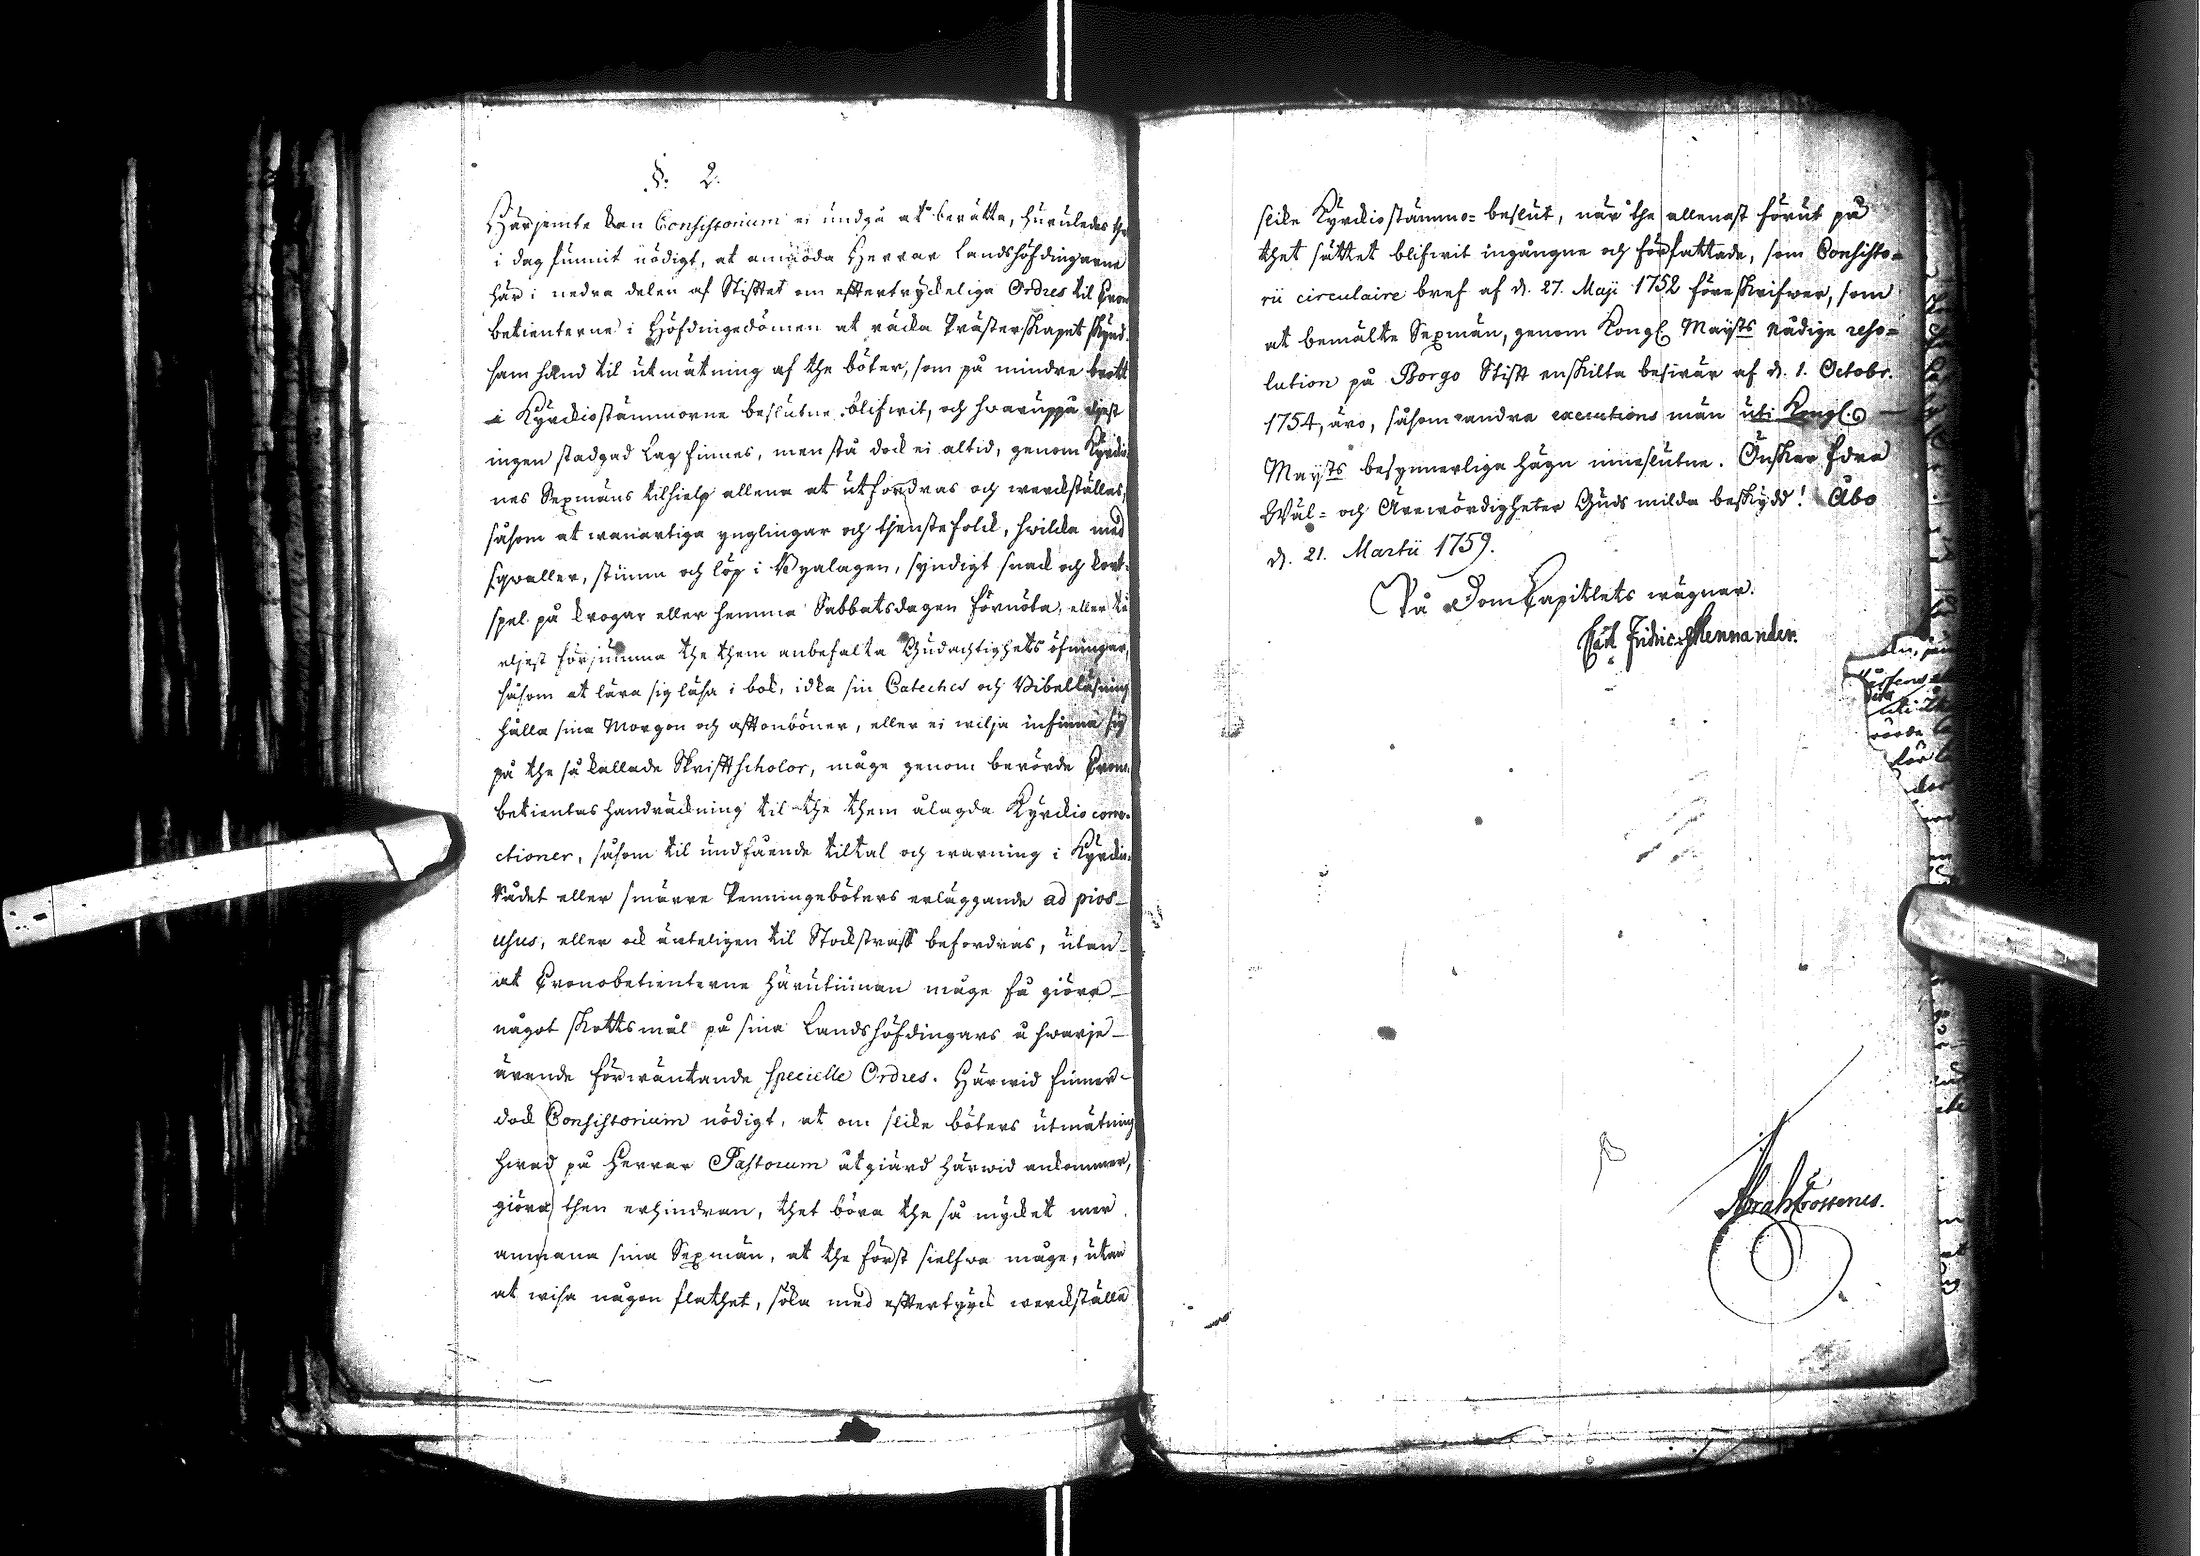 §. 2.
Härjemte kan Consistorium ei undgå at berätta, huruledes thet
i dag funnit nödigt, at anmoda Herrar Landshöfdingarne
här i nedra delen af Stifftet om efftertryckeliga Ordres til Crono
betienterne i Höfdingedömen at räcka Prästerskapet skynd-
sam hand til utmätning af the böter, som på mindre brott
i Kyrckiostämmorne beslutne blifwit, och hwaruppå eljest
ingen stadgad Lag finnes, men stå dock ei altid, genom Kyrckio-
nes Sexmäns tilhielp allena at utfordras och werckställas,
såsom at wanartiga ynglingar och thienstefolck, hwilka med
sqwaller, stimm och lop i Byalagen, syndigt snack och kort-
spel på krogar eller hemma Sabbatsdagen förnöta, eller
eljest försumma the them anbefalta Gudachtighets öfningar,
såsom at lära sig läsa i bok, idka sin Catechés och Bibelläsning
hålla sina Morgon och afftonböner, eller ei wilja infinna sig
på the så kallade Skrifftscholor, måge genom berörde Crono-
betientas handräckning til the them ålagda Kyrckio corre-
ctioner, såsom til undfående tiltal och warning i Kyrckio-
Rådet eller smärre Penningeböters erläggande ad pios
usus, eller ock änteligen til Stockstraff befordras, utan
at Cronobetienterne härutinnan måge få giöra
något skottsmål på sina Landshöfdingars å hwarje
ärende förwäntande specielle Ordres. Härwid finner
dock Consistorium nödigt, at om slike böters utmätning
hwad på Herrar Pastorum åtgiärd härwid ankommer,
giöra then erhindran, thet böra the så mycket mer
anmana sina Sexmän, at the först sielfwa måge, utan
at wisa någon flathet, söka med efftertryck werckställa
slike Kyrckiostämmo-beslut, när the allenast förut på
thet sättet blifwit ingångne och författade, som Consisto-
rii circulaire bref af d. 27. Maji 1752 föreskrifwer, som
at bemälte Sexmän, genom Kongl Maysts nådige reso-
lution på Borgo Stifft enskilta beswär af d. 1. Octobr.
1754, äro, såsom andra executions män uti Kongl.
Maysts besynnerliga hägn inneslutne. Önskar Edra
Wäl- och Ärewördigheter Guds milda beskydd! Åbo
d. 21. Martii 1759.
På DomCapitlets wägnar.
Carl Fridric Mennander.